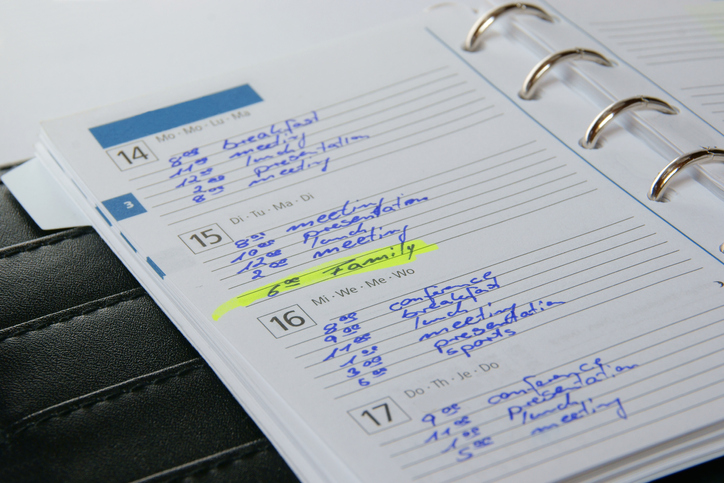 Mo · Mo · Lu · Ma
14
8°° breakfast
11°° meeting
12°° lunch
2°° Presentation
8°° meeting
3
Di · Tu · Ma · Di
15
8°° meeting
10°° Presentation
12°° lunch
2°° meeting
6°° Family
Mi · We · Me · Wo
16
8°° conference
9°° breakfast
11°° lunch
1°° meeting
3°° presentation
6°° sports
Do · Th · Je · Do
17
9°° conference
11°° Presentation
1°° lunch
5°° meeting